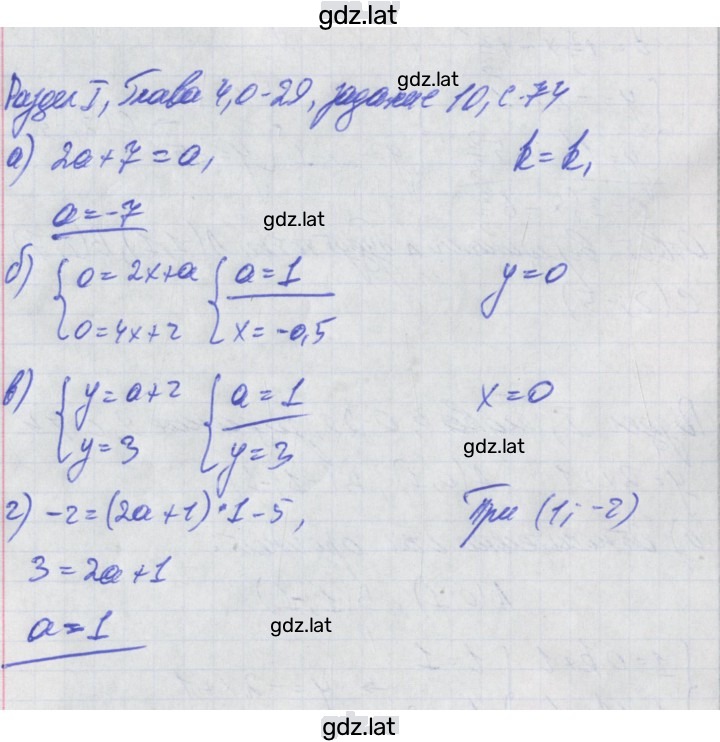 gdz.lat
Раздел I, Глава 4, О-29, задание 10, с. 74
gdz.lat
а) 2a+7=a, k=k,
a=-7
gdz.lat
б) { 0=2x+a { a=1 y=0
0=4x+2 x=-0,5
в) { y=a+2 { a=1 x=0
y=3 y=3
gdz.lat
г) -2=(2a+1)·1-5, При (1; -2)
3=2a+1
a=1
gdz.lat
gdz.lat